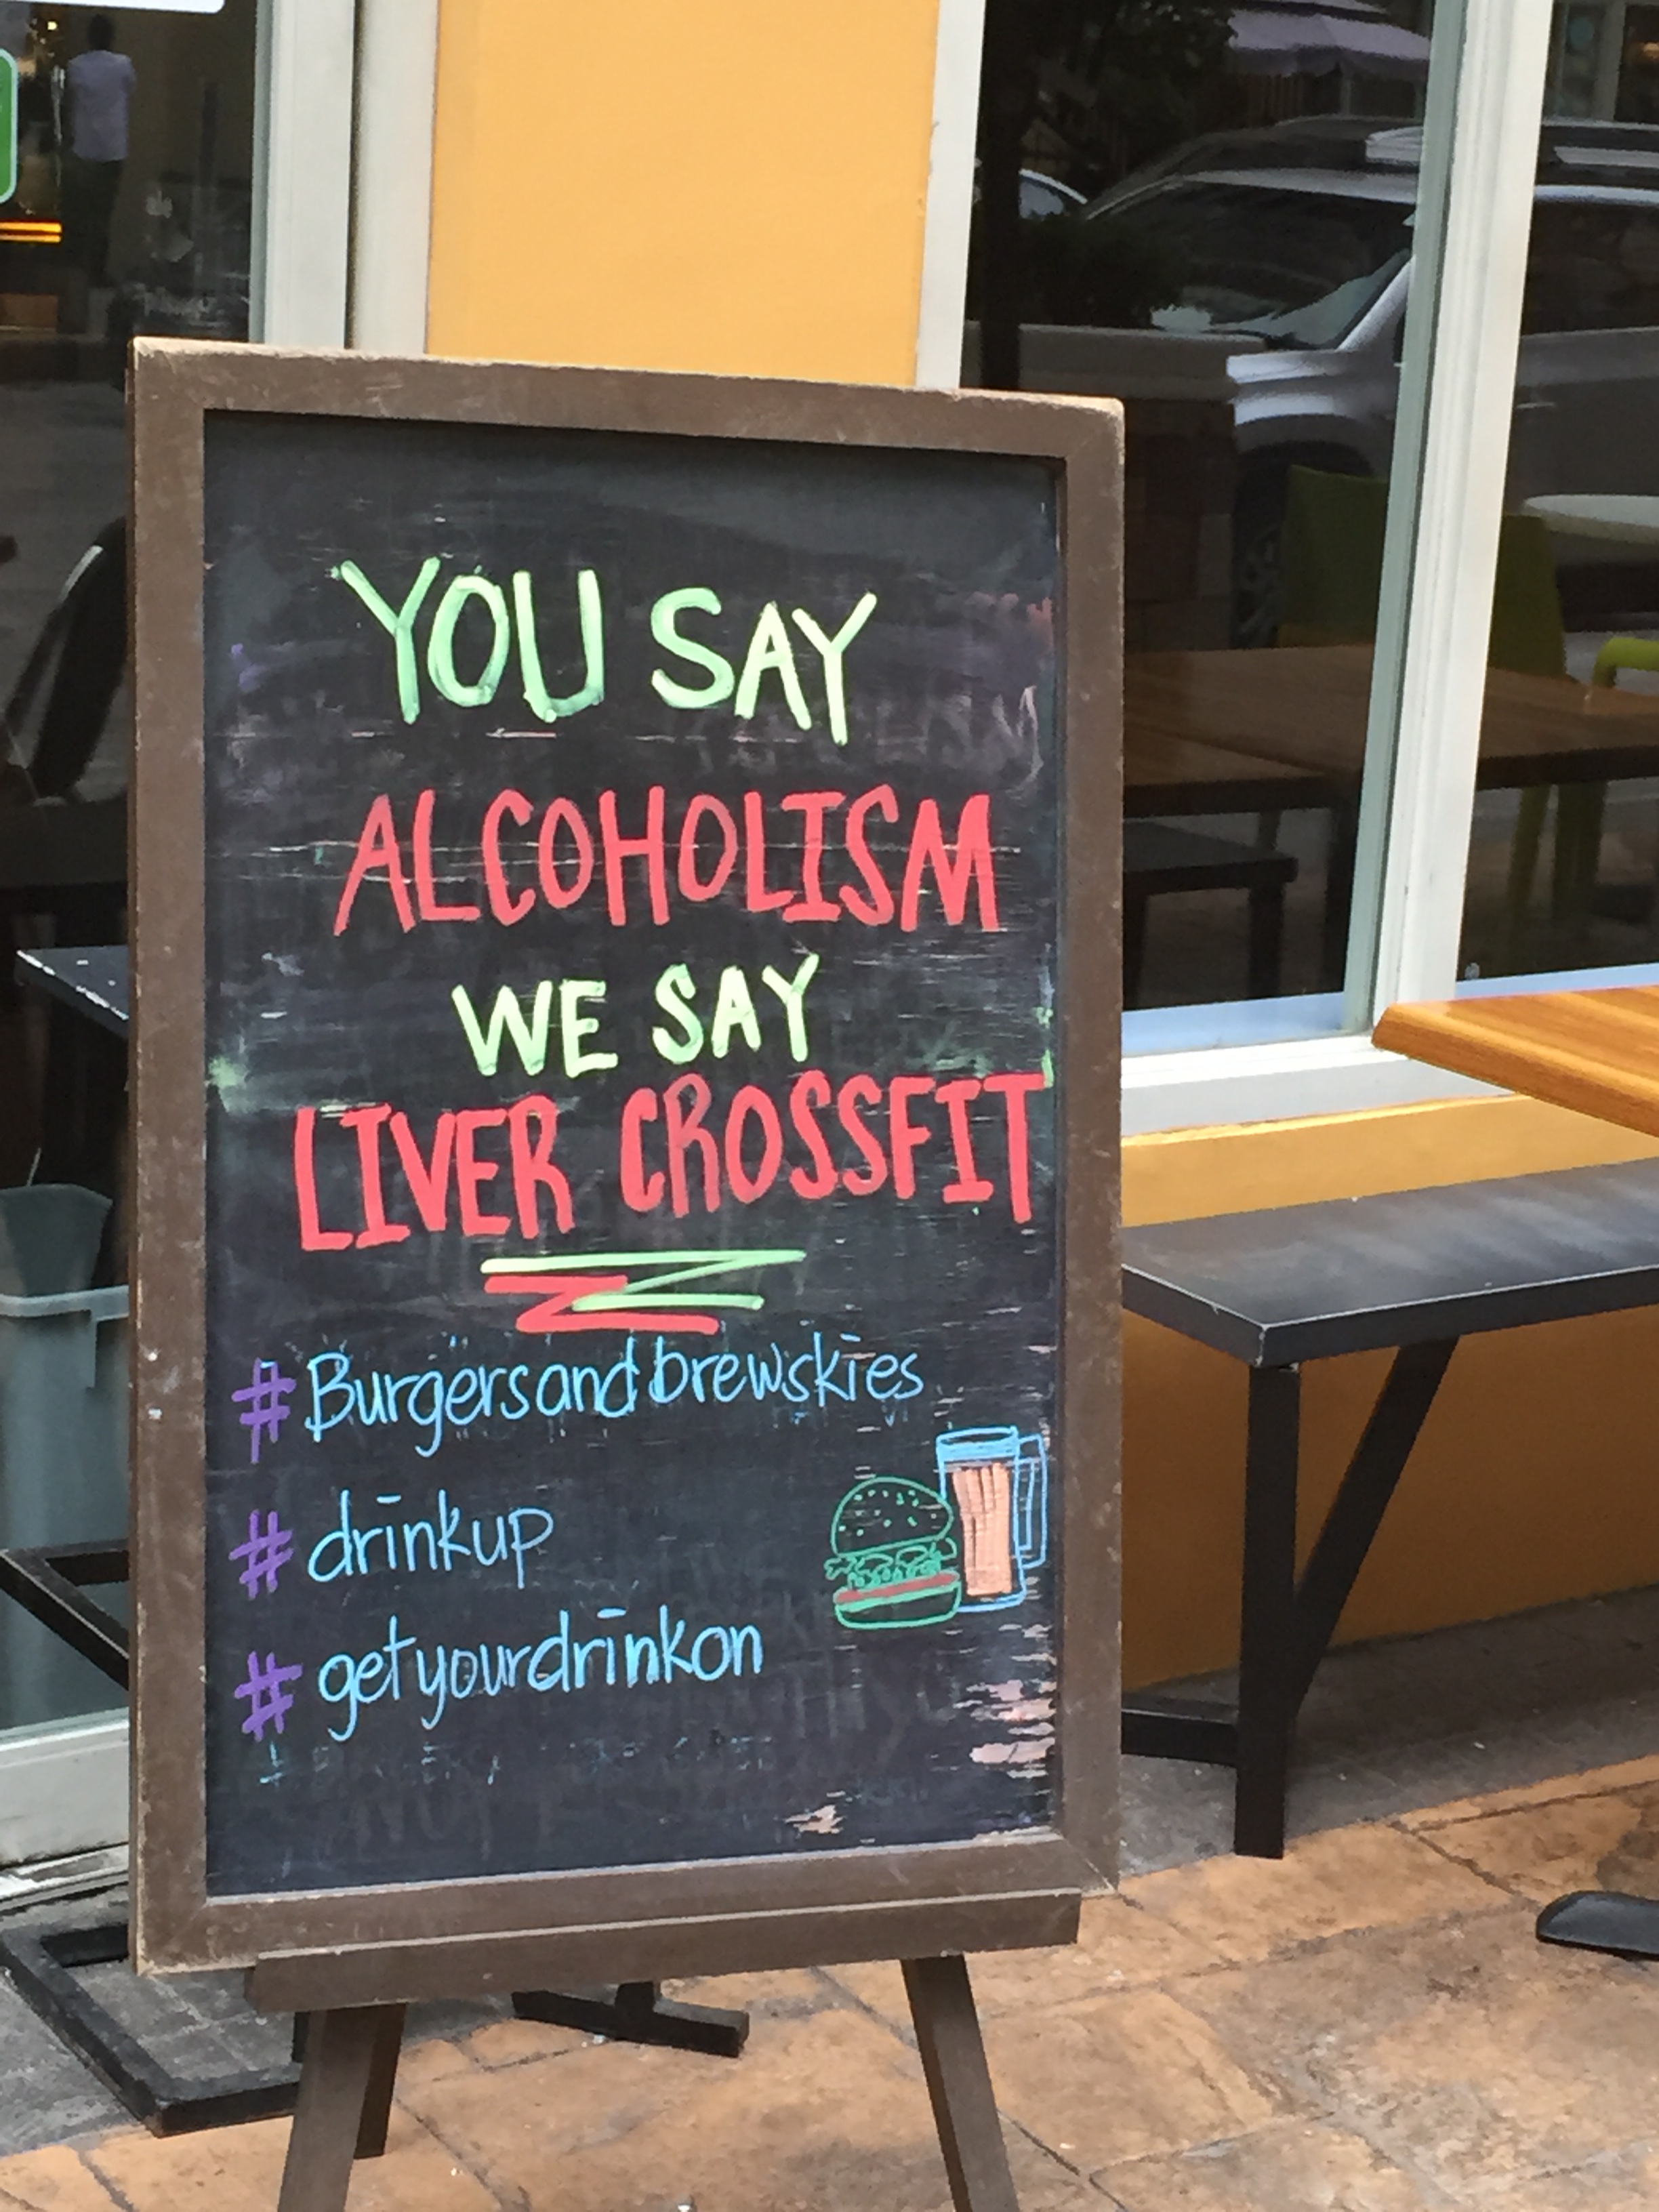 YOU SAY
ALCOHOLISM
WE SAY
LIVER CROSSFIT
#Burgersandbrewskies
#drinkup
#getyourdrinkon